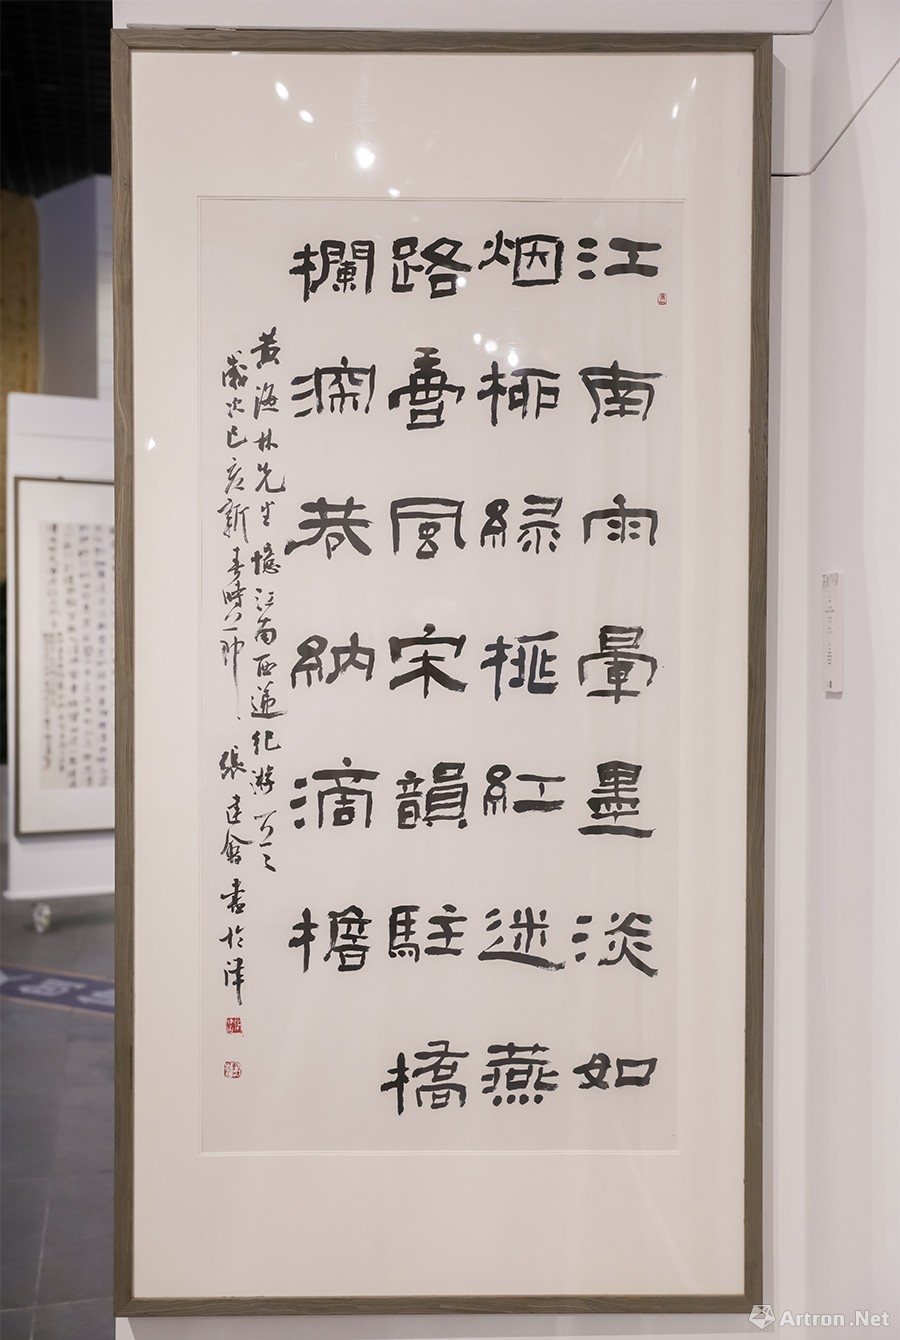 江南雨暈墨淡如
烟柳綠桃紅迷燕
路唐風宋韻駐橋
欄深巷納滴檐
黄海林先生憶江南西遞紀游
歲次己亥新春時 張建會書於津
Artron.Net